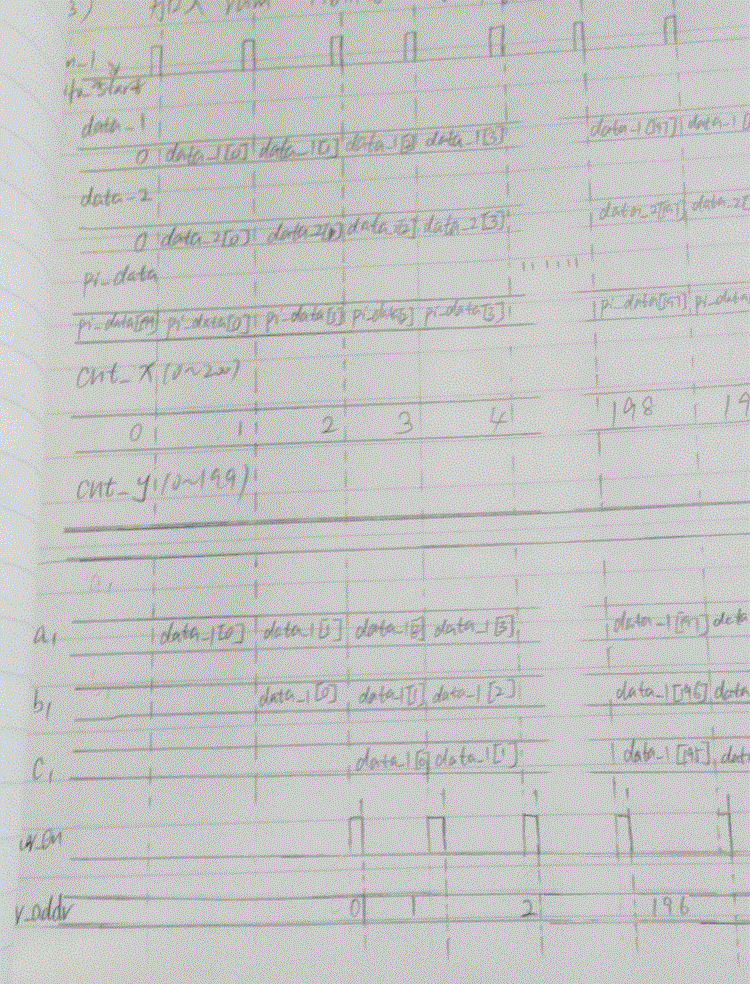 3) ram
data_1
0 data_1[0] data_1[1] data_1[2] data_1[3] data_1[197] data_1
data_2
0 data_2[0] data_2[1] data_2[2] data_2[3] data_2[197] data_2
pi_data
pi_data[199] pi_data[0] pi_data[1] pi_data[2] pi_data[3] pi_data[197] pi_data
cnt_x (0~200)
0 1 2 3 4 198 19
cnt_y (0~199)
a1 data_1[0] data_1[1] data_1[2] data_1[3] data_1[197] data
b1 data_1[0] data_1[1] data_1[2] data_1[196] data
c1 data_1[0] data_1[1] data_1[195] data
wr_en
v_addr 0 1 2 196